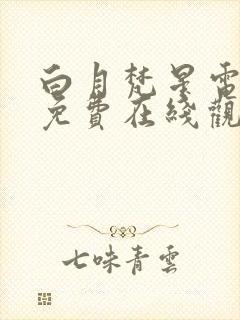 白月梵星電
免費在綫觀
七味青雲